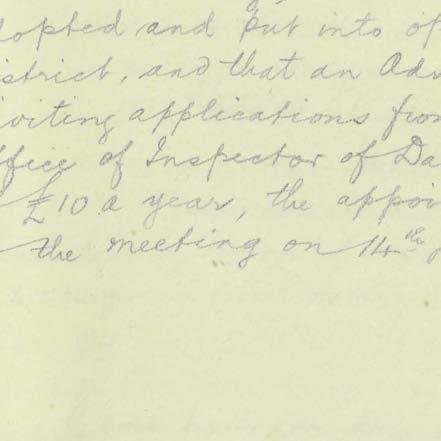 dopted and put into op
istrict, and that an Adv
viting applications from
ffice of Inspector of Da
£10 a year, the appoi
the meeting on 14th